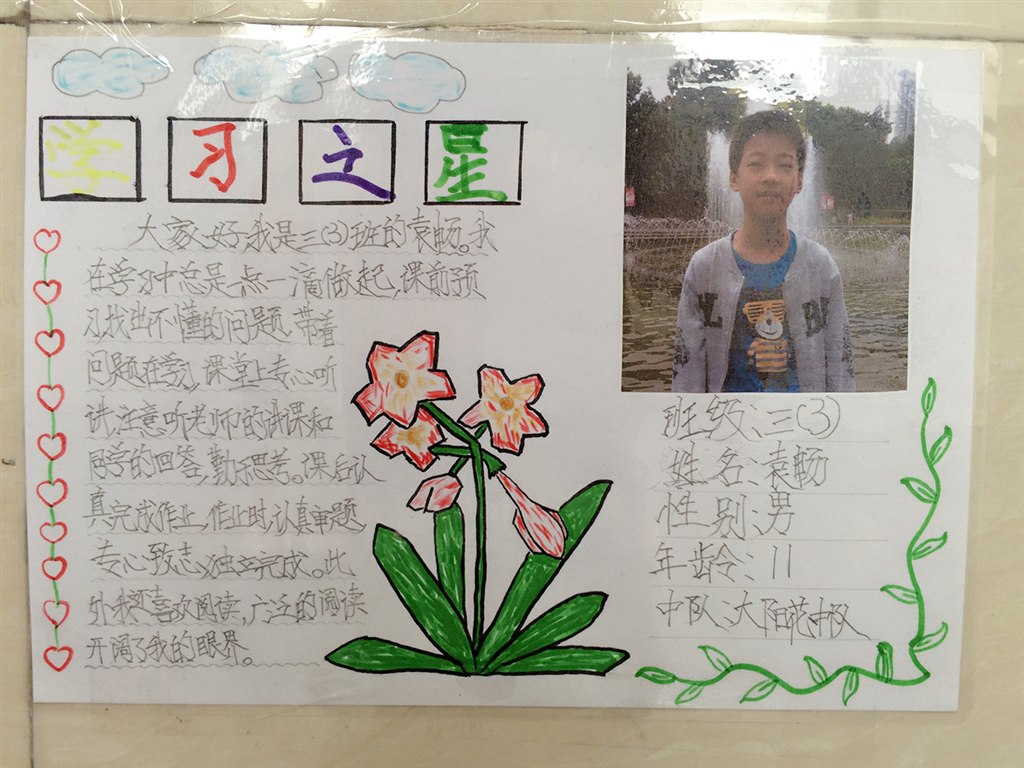 学习之星
大家好,我是三(3)班的袁畅。我
在学习中总是一点一滴做起,课前预
习找出不懂的问题,带着
问题在学习,课堂上专心听
讲,注意听老师的讲课和
同学的回答,勤于思考。课后认
真完成作业,作业时,认真审题,
专心致志,独立完成。此
外我还喜欢阅读,广泛的阅读
开阔了我的眼界。
班级:三(3)
姓名:袁畅
性别:男
年龄:11
中队:大阳花中队